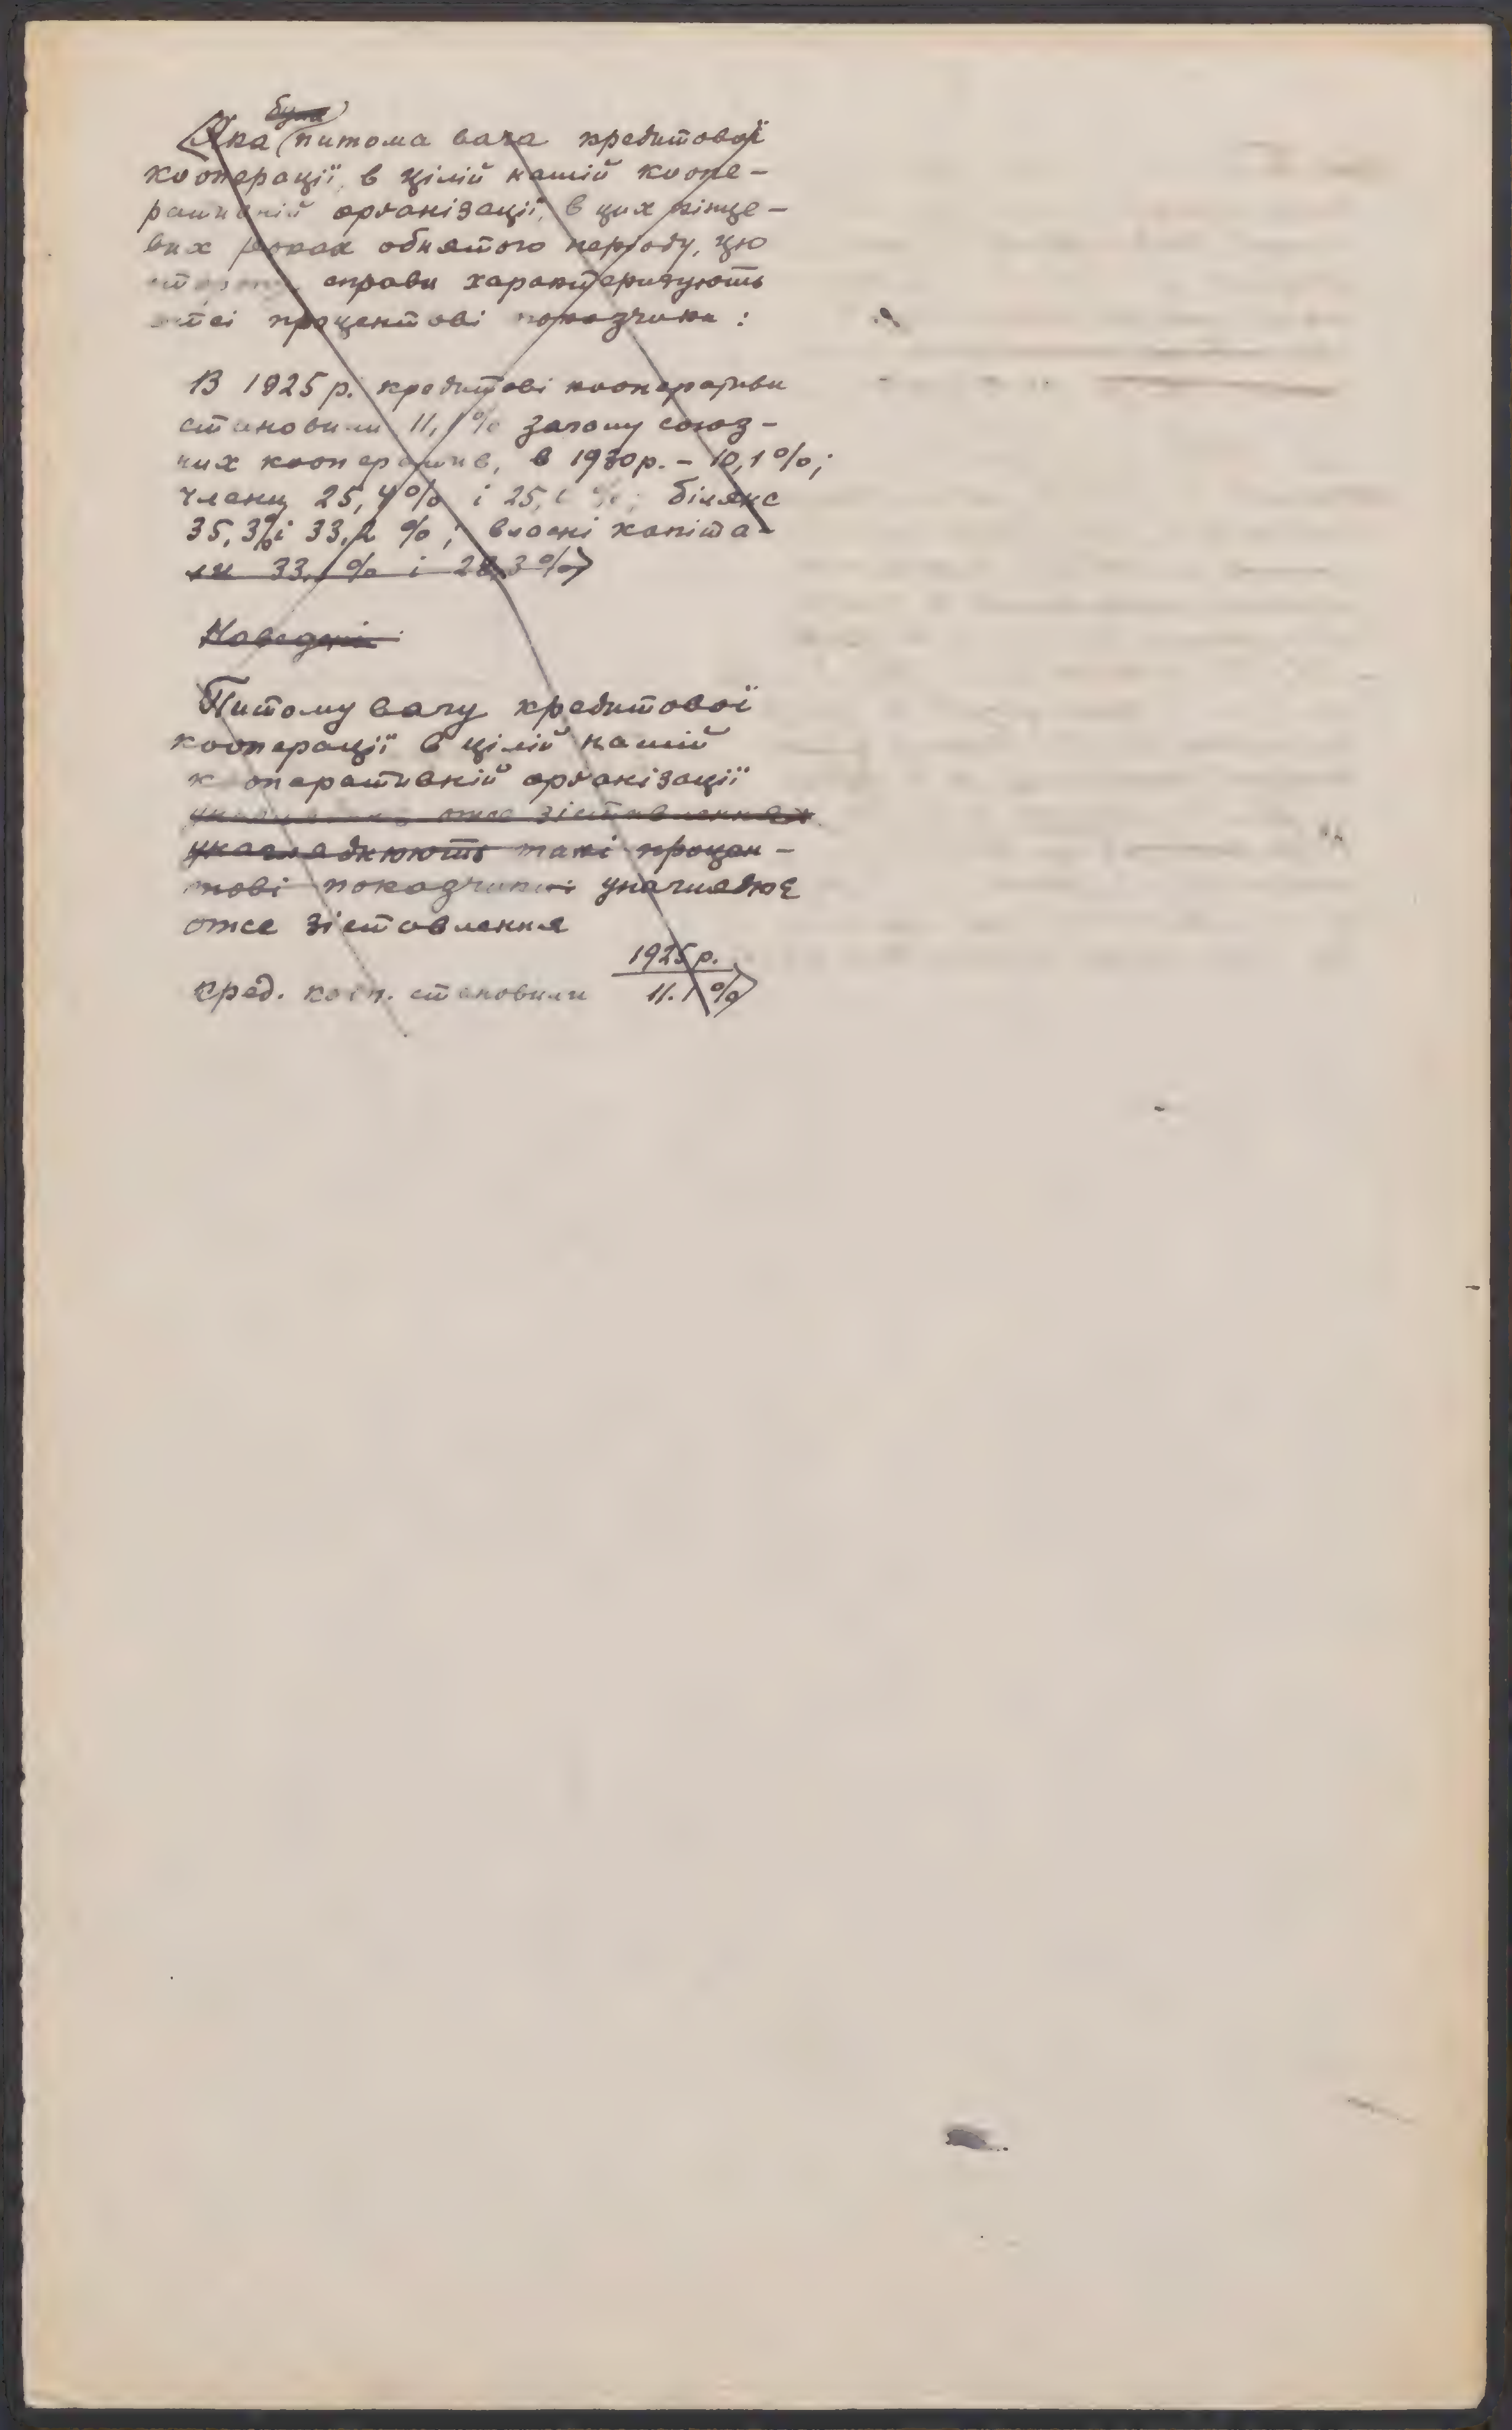 була
Яка питома вага кредитової
кооперації, в цілій нашій коопе-
ративній орґанізації, в цих кінце-
вих роках обнятого періоду, цю
сторону справи характеризують
отсі процентові показчики :
В 1925 р. кредитові кооперативи
становили 11,1% загому союз-
них кооператив, в 1930 р. – 10,1%;
члени 25,4% і 25, %; білянс
35,3% і 33,2 % ; власні капіта-
ли 33,1 % і 28,3 %
Наведені
Питому вагу кредитової
кооперації в цілій нашій
кооперативній орґанізації
отсе зіставлення
унагляднюють такі процен-
тові показчики унагляднює
отсе зіставлення
1925 р.
кред. кооп. становили 11.1 %